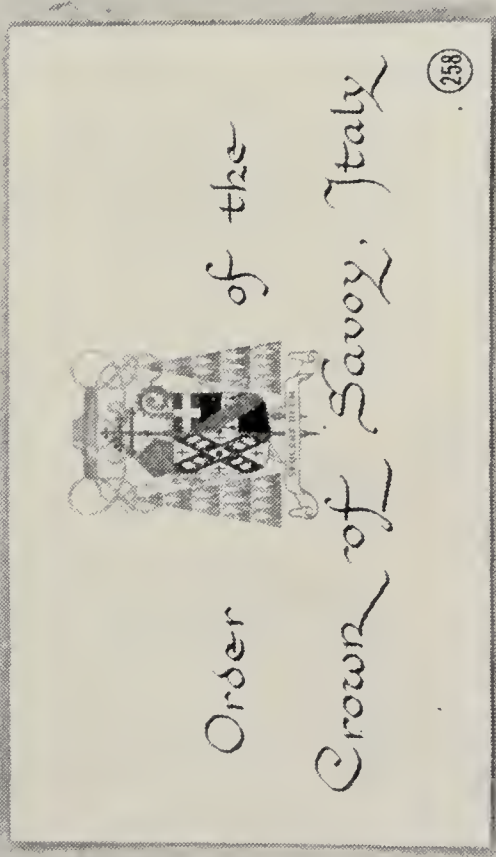 Order of the
Crown of Savoy. Italy
258